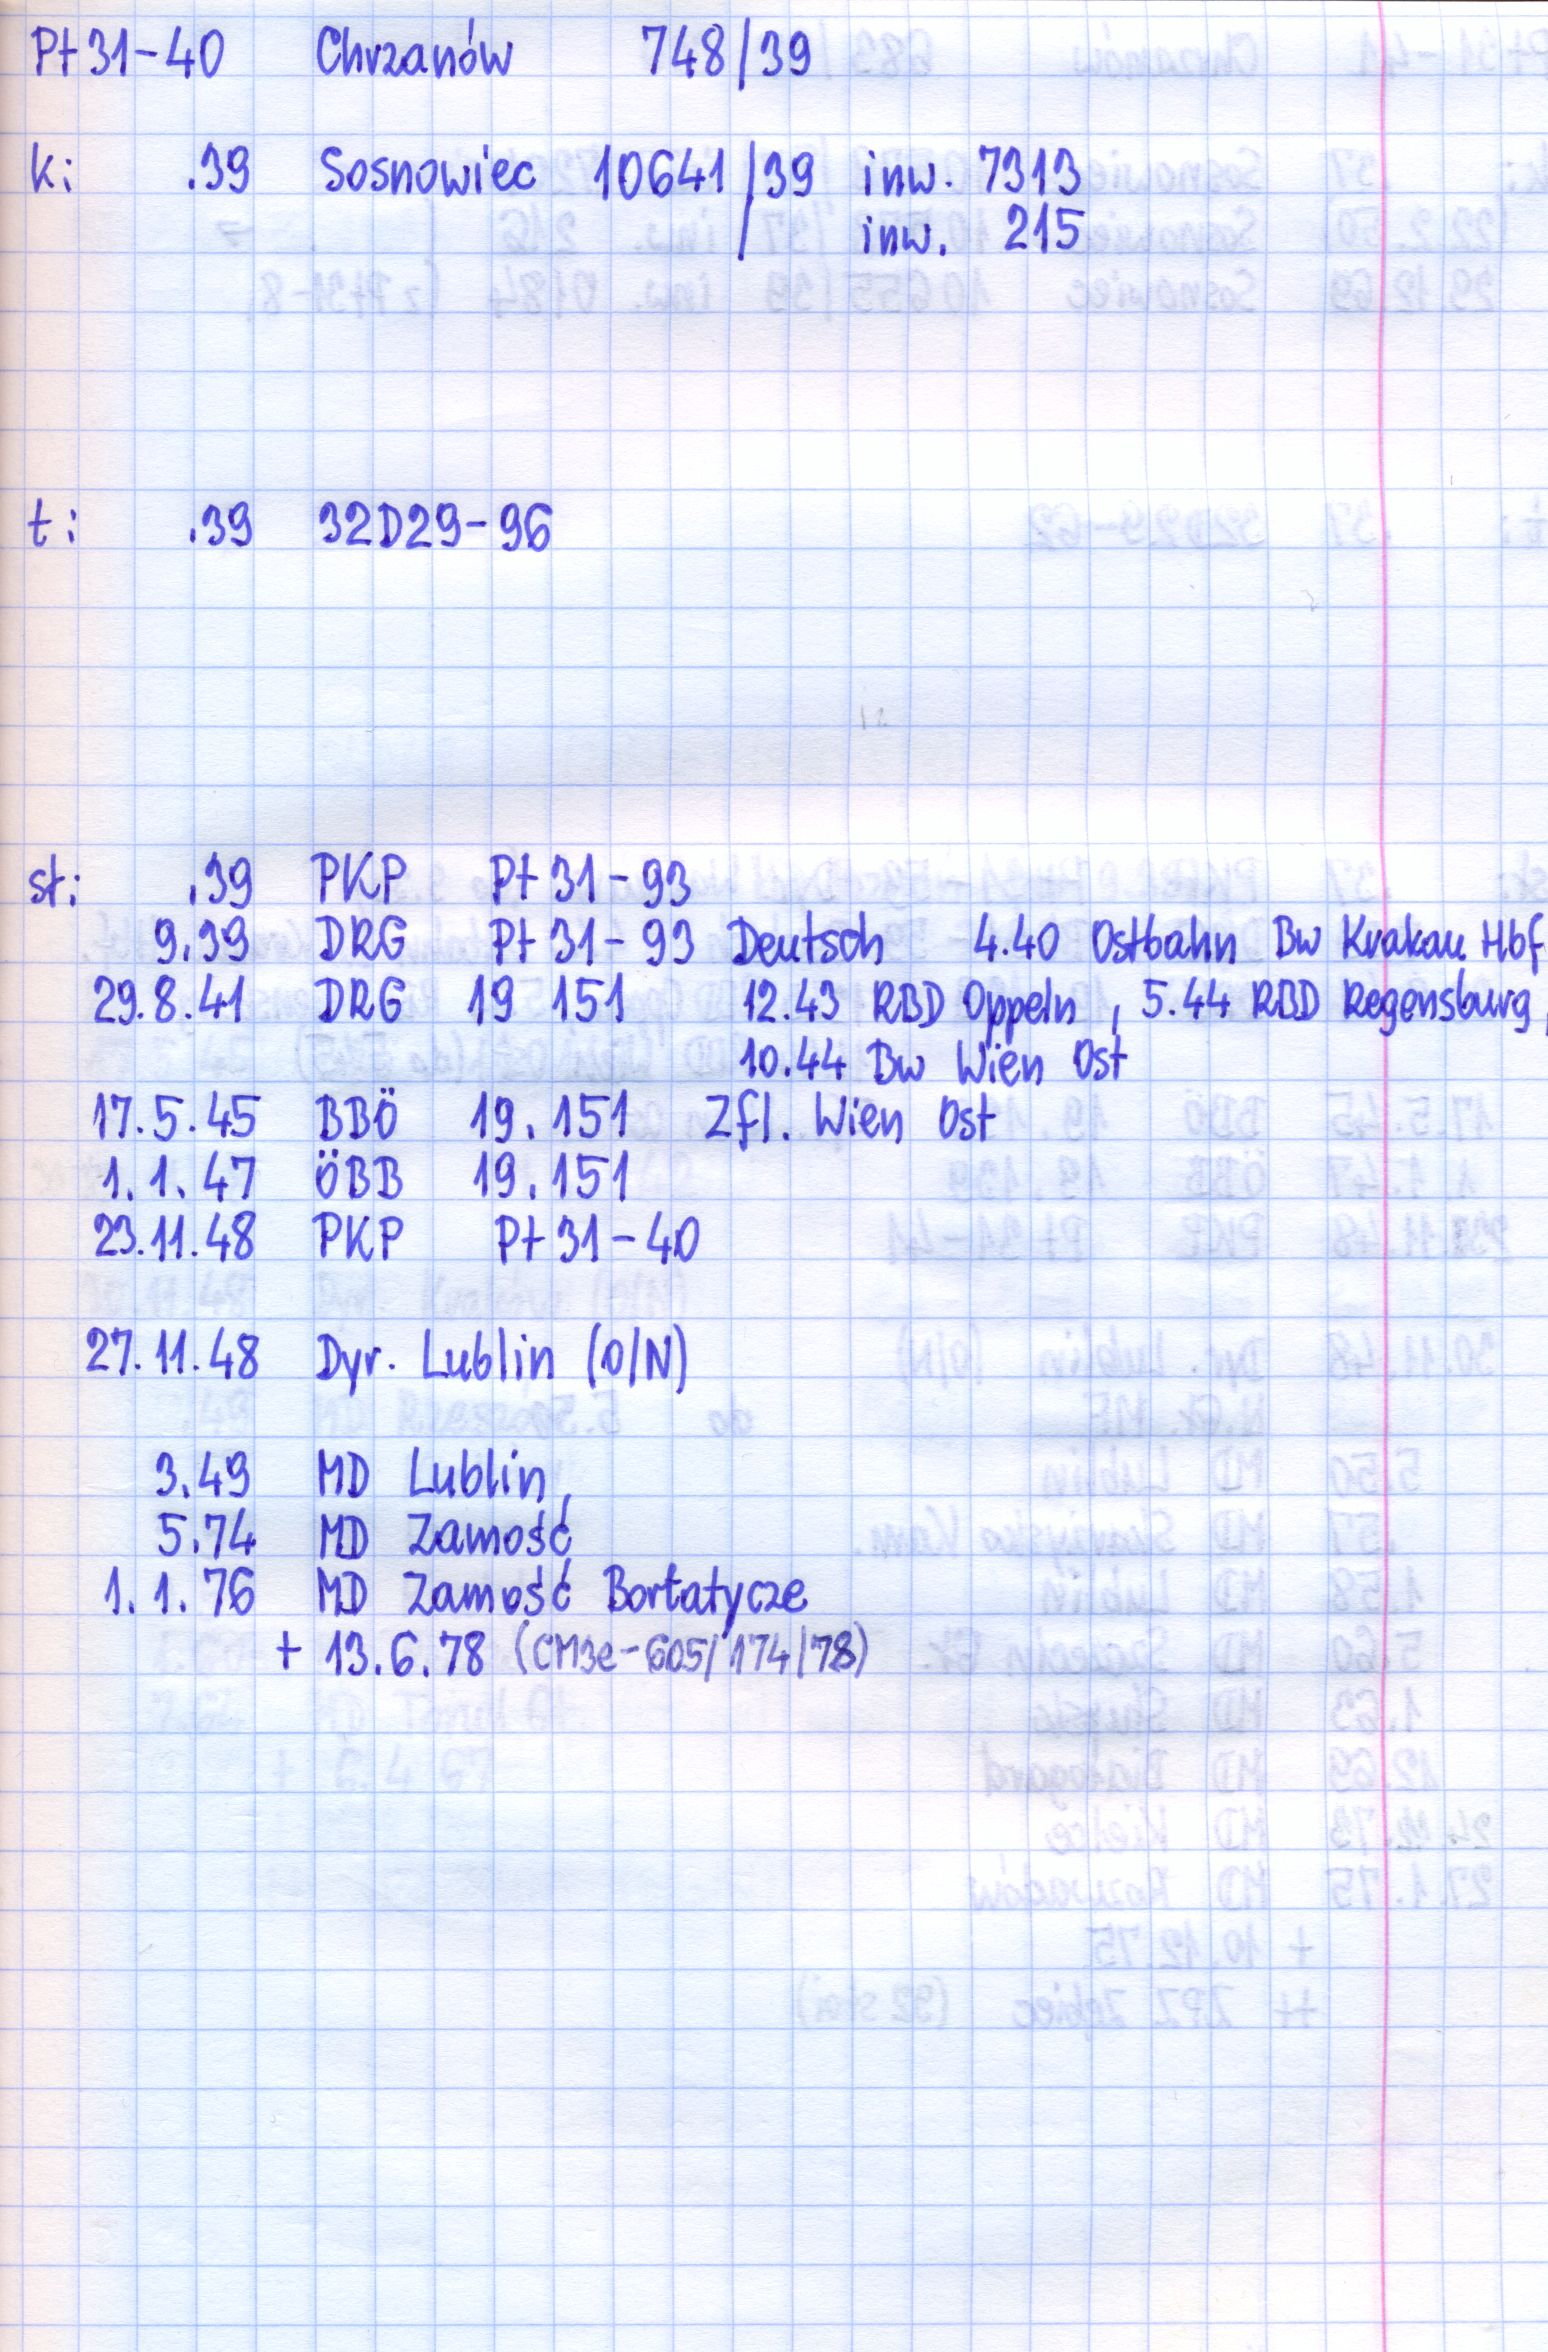 Pt31-40 Chrzanów 748/39
k: .39 Sosnowiec 10641/39 inw. 7313
inw. 215
t: .39 32D29-96
st: .39 PKP Pt31-93
9.39 DRG Pt31-93 Deutsch 4.40 Ostbahn Bw Krakau Hbf
29.8.41 DRG 19 151 12.43 RBD Oppeln, 5.44 RBD Regensburg,
10.44 Bw Wien Ost
17.5.45 BBÖ 19.151 Zfl. Wien Ost
1.1.47 ÖBB 19.151
23.11.48 PKP Pt31-40
27.11.48 Dyr. Lublin (O/N)
3.49 MD Lublin
5.74 MD Zamość
1.1.76 MD Zamość Bortatycze
+ 13.6.78 (CM3e-605/174/78)